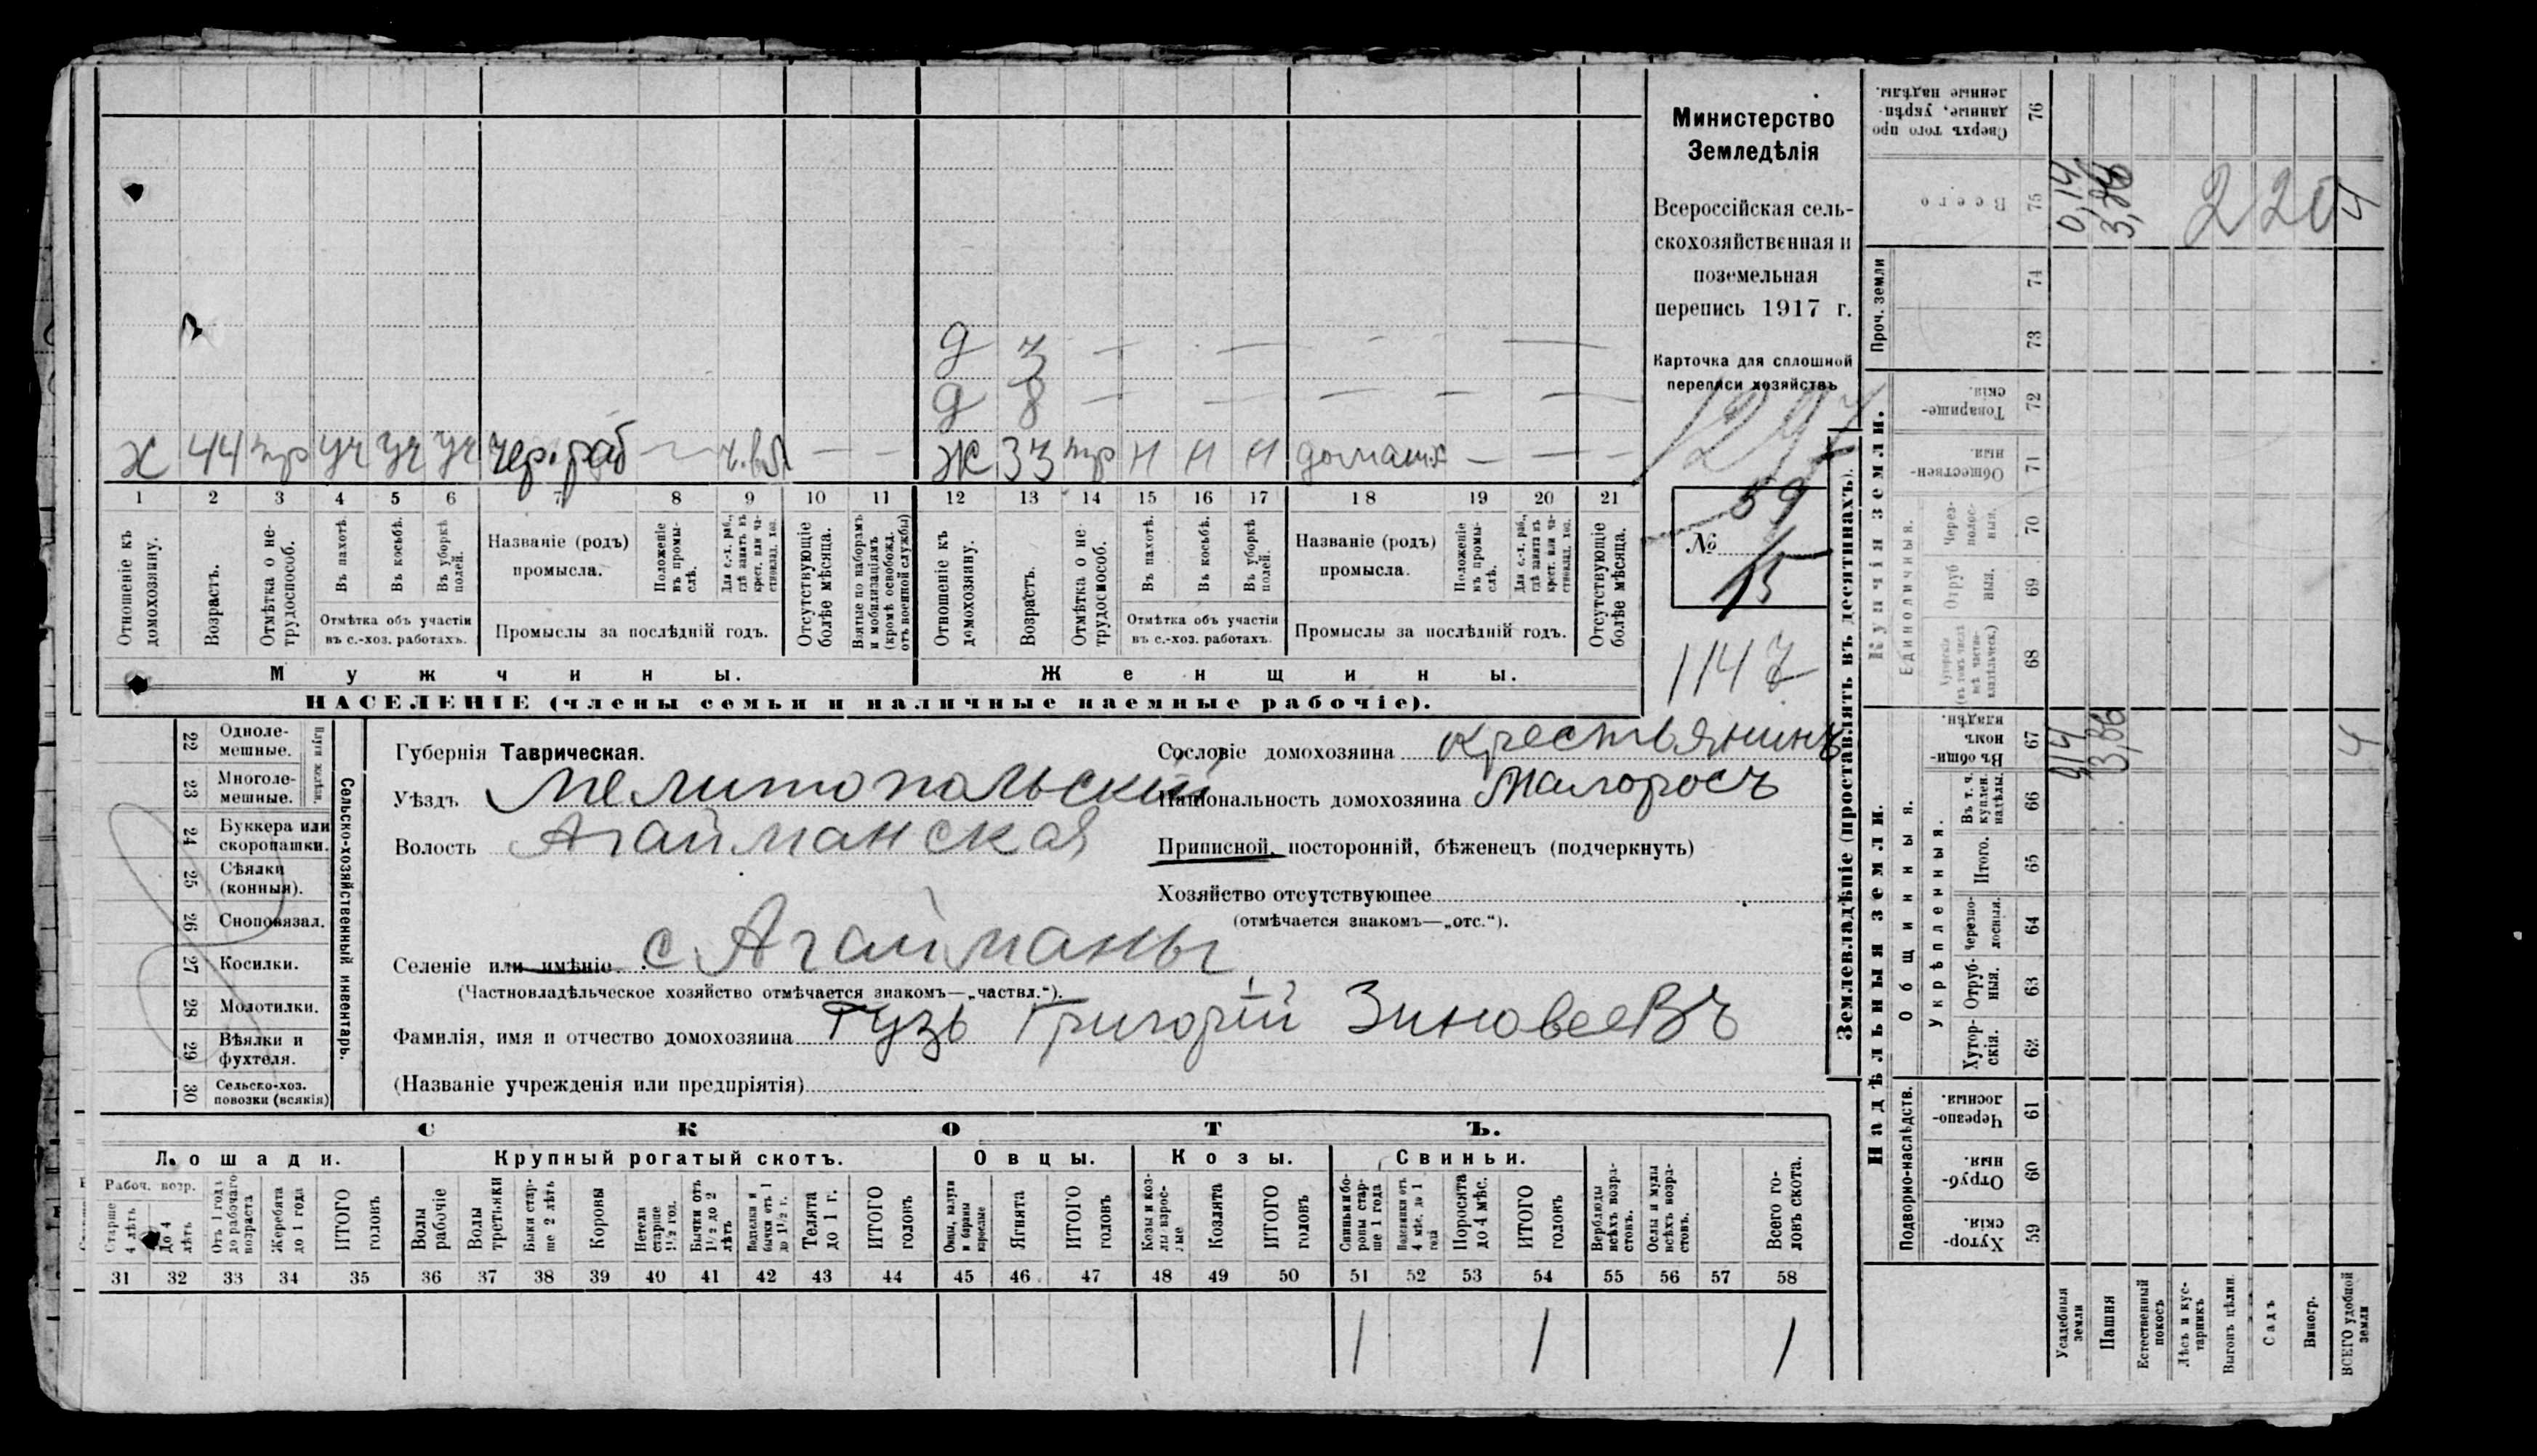 Министерство
Земледѣлія
Всероссійская сель-
скохозяйственная и
поземельная
перепись 1917 г.
Карточка для сплошной
переписи хозяйствъ
59
№
15
1147
д 3 — — — —
д 8 — — — — —
х 44 пр уч уч уч чер. раб — — — ж 33 пр н н н домашн — — —
1 2 3 4 5 6 7 8 9 10 11 12 13 14 15 16 17 18 19 20 21
Отношеніе къ домохозяину.
Возрастъ.
Отмѣтка о не-трудоспособ.
Въ пахотѣ.
Въ косьбѣ.
Въ уборкѣ полей.
Отмѣтка объ участіи
въ с.-хоз. работахъ.
Названіе (родъ)
промысла.
Положеніе въ промы-слѣ.
Для с.-х. раб., гдѣ занятъ въ крест. или ча-стновлад. хоз.
Промыслы за послѣдній годъ.
Отсутствующіе болѣе мѣсяца.
Взятые по наборамъ и мобилизаціямъ (кромѣ освобожд. отъ военной службы)
Отношеніе къ домохозяину.
Возрастъ.
Отмѣтка о не-трудоспособ.
Въ пахотѣ.
Въ косьбѣ.
Въ уборкѣ полей.
Отмѣтка объ участіи
въ с.-хоз. работахъ.
Названіе (родъ)
промысла.
Положеніе въ промы-слѣ.
Для с.-х. раб., гдѣ занята въ крест. или ча-стновлад. хоз.
Промыслы за послѣдній годъ.
Отсутствующіе болѣе мѣсяца.
Мужчины. Женщины.
НАСЕЛЕНІЕ (члены семьи и наличные наемные рабочіе).
22 Одноле-мешные.
23 Многоле-мешные.
Плуги желѣзн.
24 Буккера или скоропашки.
25 Сѣялки (конныя).
26 Сноповязал.
27 Косилки.
28 Молотилки.
29 Вѣялки и фухтеля.
30 Сельско-хоз. повозки (всякія)
Сельско-хозяйственный инвентарь.
Губернія Таврическая.
Уѣздъ Мелитопольскій
Волость Агайманская
Селеніе или имѣніе с. Агайманы
(Частновладѣльческое хозяйство отмѣчается знакомъ—„частвл.“).
Фамилія, имя и отчество домохозяина Гузь Григорій Зиновеевъ
(Названіе учрежденія или предпріятія)
Сословіе домохозяина крестьянинъ
Національность домохозяина Малоросъ
Приписной, посторонній, бѣженецъ (подчеркнуть)
Хозяйство отсутствующее
(отмѣчается знакомъ—„отс.“).
СКОТЪ.
Лошади. Крупный рогатый скотъ. Овцы. Козы. Свиньи.
Рабоч. возр.
Старше 4 лѣтъ
До 4 лѣтъ
Отъ 1 года до рабочаго возраста
Жеребята до 1 года
ИТОГО головъ
Волы рабочіе
Волы третьяки
Быки стар-ше 2 лѣтъ
Коровы
Нетели старше 1½ год.
Бычки отъ 1½ до 2 лѣтъ
Телки и бычки отъ 1 до 1½ г.
Телята до 1 г.
ИТОГО головъ
Овцы, валухи и бараны взрослые
Ягнята
ИТОГО головъ
Козы и коз-лы взрос-лые
Козлята
ИТОГО головъ
Свиньи и бо-ровы стар-ше 1 года
Подсвинки отъ 4 мѣс. до 1 года
Поросята до 4 мѣс.
ИТОГО головъ
Верблюды всѣхъ возра-стовъ.
Ослы и мулы всѣхъ возра-стовъ.
Всего го-ловъ скота.
31 32 33 34 35 36 37 38 39 40 41 42 43 44 45 46 47 48 49 50 51 52 53 54 55 56 57 58
1 1 1
Землевладѣніе (проставлять въ десятинахъ).
Сверхъ того про-данные, укрѣп-ленные надѣлы. 76
Всего 75 0,14 2 2 4
Проч. земли 74 73
Купчія земли.
Товарище-скія. 72
Обществен-ныя. 71
Единоличныя.
Через-полос-ныя. 70
Отруб-ныя. 69
Хуторскія (въ томъ числѣ всѣ частно-владѣльческ.) 68
Надѣльныя земли.
Общинныя.
Въ общи-номъ владѣн. 67 3,86 4
Укрѣпленныя.
Въ т. ч. куплен. надѣлы. 66
Итого. 65
Черезпо-лосныя. 64
Отруб-ныя. 63
Хутор-скія. 62
Подворно-наслѣдств.
Черезпо-лосныя. 61
Отруб-ныя. 60
Хутор-скія. 59
Усадебныя земли
Пашня
Естественный покосъ
Лѣсъ и кус-тарникъ
Выгонъ цѣлин.
Садъ
Виногр.
ВСЕГО удобной земли